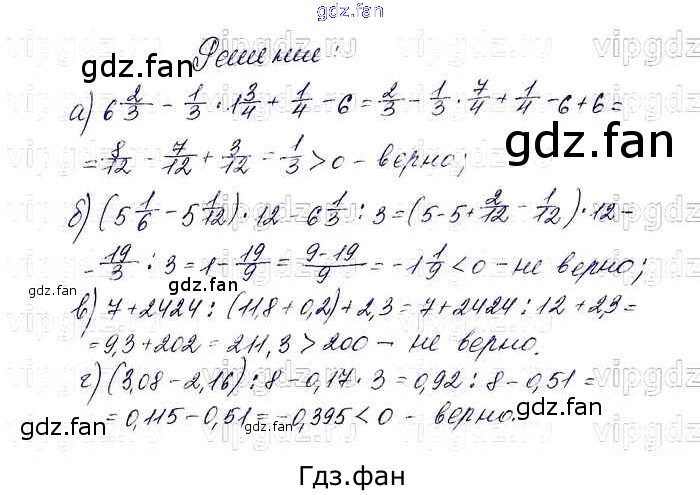 gdz.fan
Решение:
а) 6 2/3 - 1/3 · 1 3/4 + 1/4 - 6 = 2/3 - 1/3 · 7/4 + 1/4 - 6 + 6 =
= 8/12 - 7/12 + 3/12 = 1/3 > 0 - верно;
б) (5 1/6 - 5 1/12) · 12 - 6 1/3 : 3 = (5 - 5 + 2/12 - 1/12) · 12 -
- 19/3 : 3 = 1 - 19/9 = (9 - 19)/9 = -1 1/9 < 0 - не верно;
в) 7 + 2424 : (11,8 + 0,2) + 2,3 = 7 + 2424 : 12 + 2,3 =
= 9,3 + 202 = 211,3 > 200 - не верно.
г) (3,08 - 2,16) : 8 - 0,17 · 3 = 0,92 : 8 - 0,51 =
= 0,115 - 0,51 = -0,395 < 0 - верно.
Гдз.фан